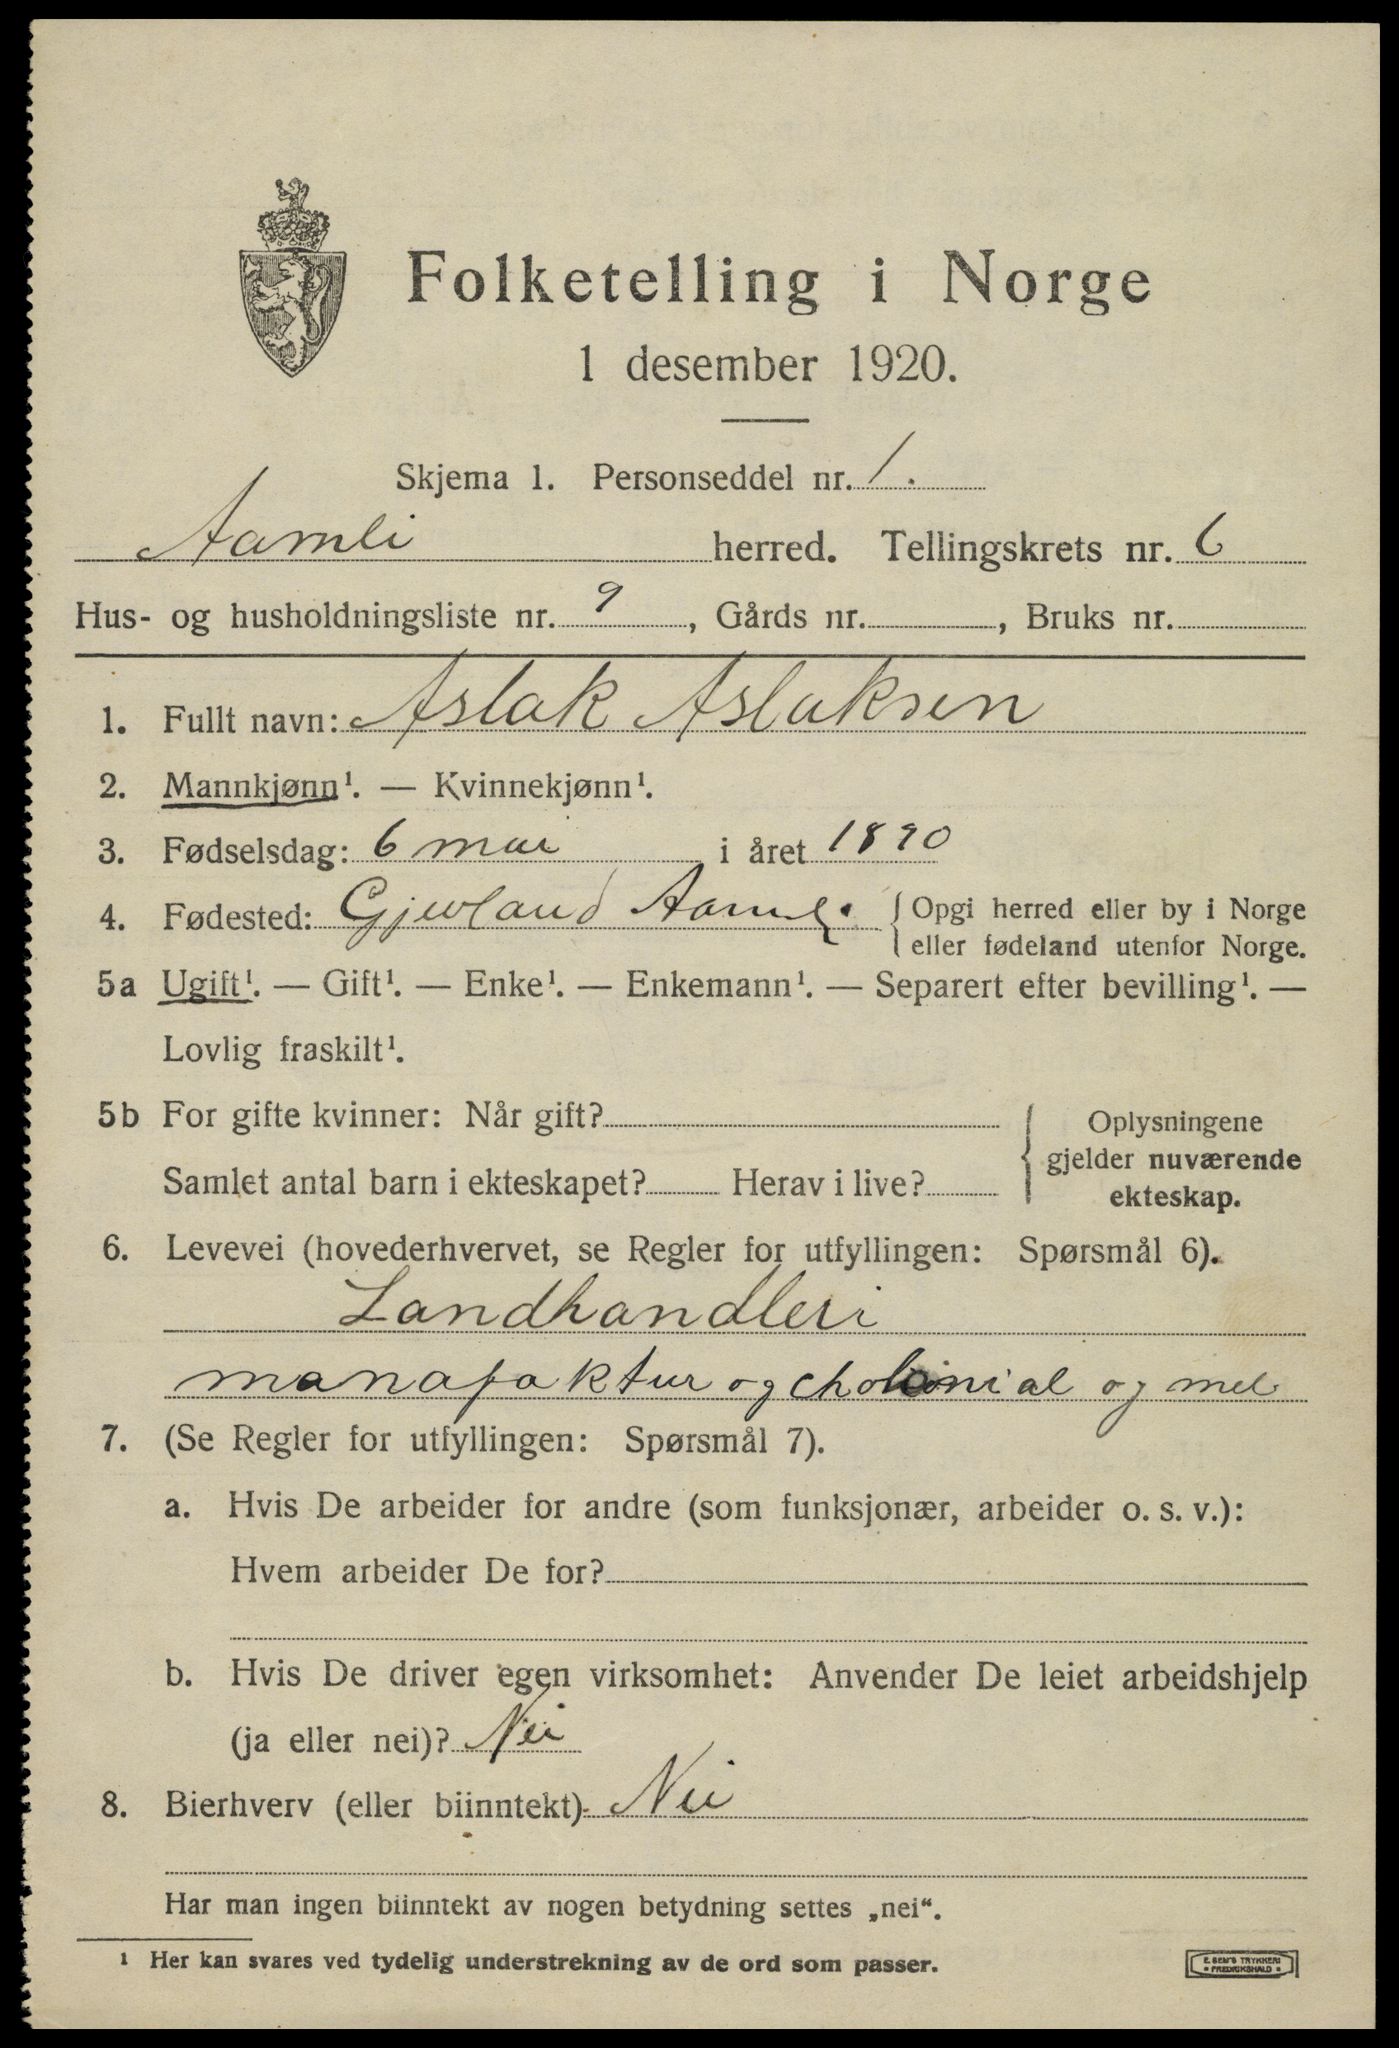 Folketelling i Norge
1 desember 1920.
Skjema 1. Personseddel nr. 1.
Aamli herred. Tellingskrets nr. 6
Hus- og husholdningsliste nr. 9, Gårds nr. , Bruks nr.
1. Fullt navn: Aslak Aslaksen
2. Mannkjønn¹. — Kvinnekjønn¹.
3. Fødselsdag: 6 mai i året 1890
4. Fødested: Gjevland Aamli { Opgi herred eller by i Norge
eller fødeland utenfor Norge.
5a Ugift¹. — Gift¹. — Enke¹. — Enkemann¹. — Separert efter bevilling¹. —
Lovlig fraskilt¹.
5b For gifte kvinner: Når gift? { Oplysningene
gjelder nuværende
Samlet antal barn i ekteskapet? Herav i live? ekteskap.
6. Levevei (hovederhvervet, se Regler for utfyllingen: Spørsmål 6).
Landhandleri
manafaktur og cholonial og mel
7. (Se Regler for utfyllingen: Spørsmål 7).
a. Hvis De arbeider for andre (som funksjonær, arbeider o. s. v.):
Hvem arbeider De for?
b. Hvis De driver egen virksomhet: Anvender De leiet arbeidshjelp
(ja eller nei)? Nei
8. Bierhverv (eller biinntekt) Nei
Har man ingen biinntekt av nogen betydning settes „nei“.
¹ Her kan svares ved tydelig understrekning av de ord som passer.
E. SEM'S TRYKKERI
• FREDRIKSHALD •